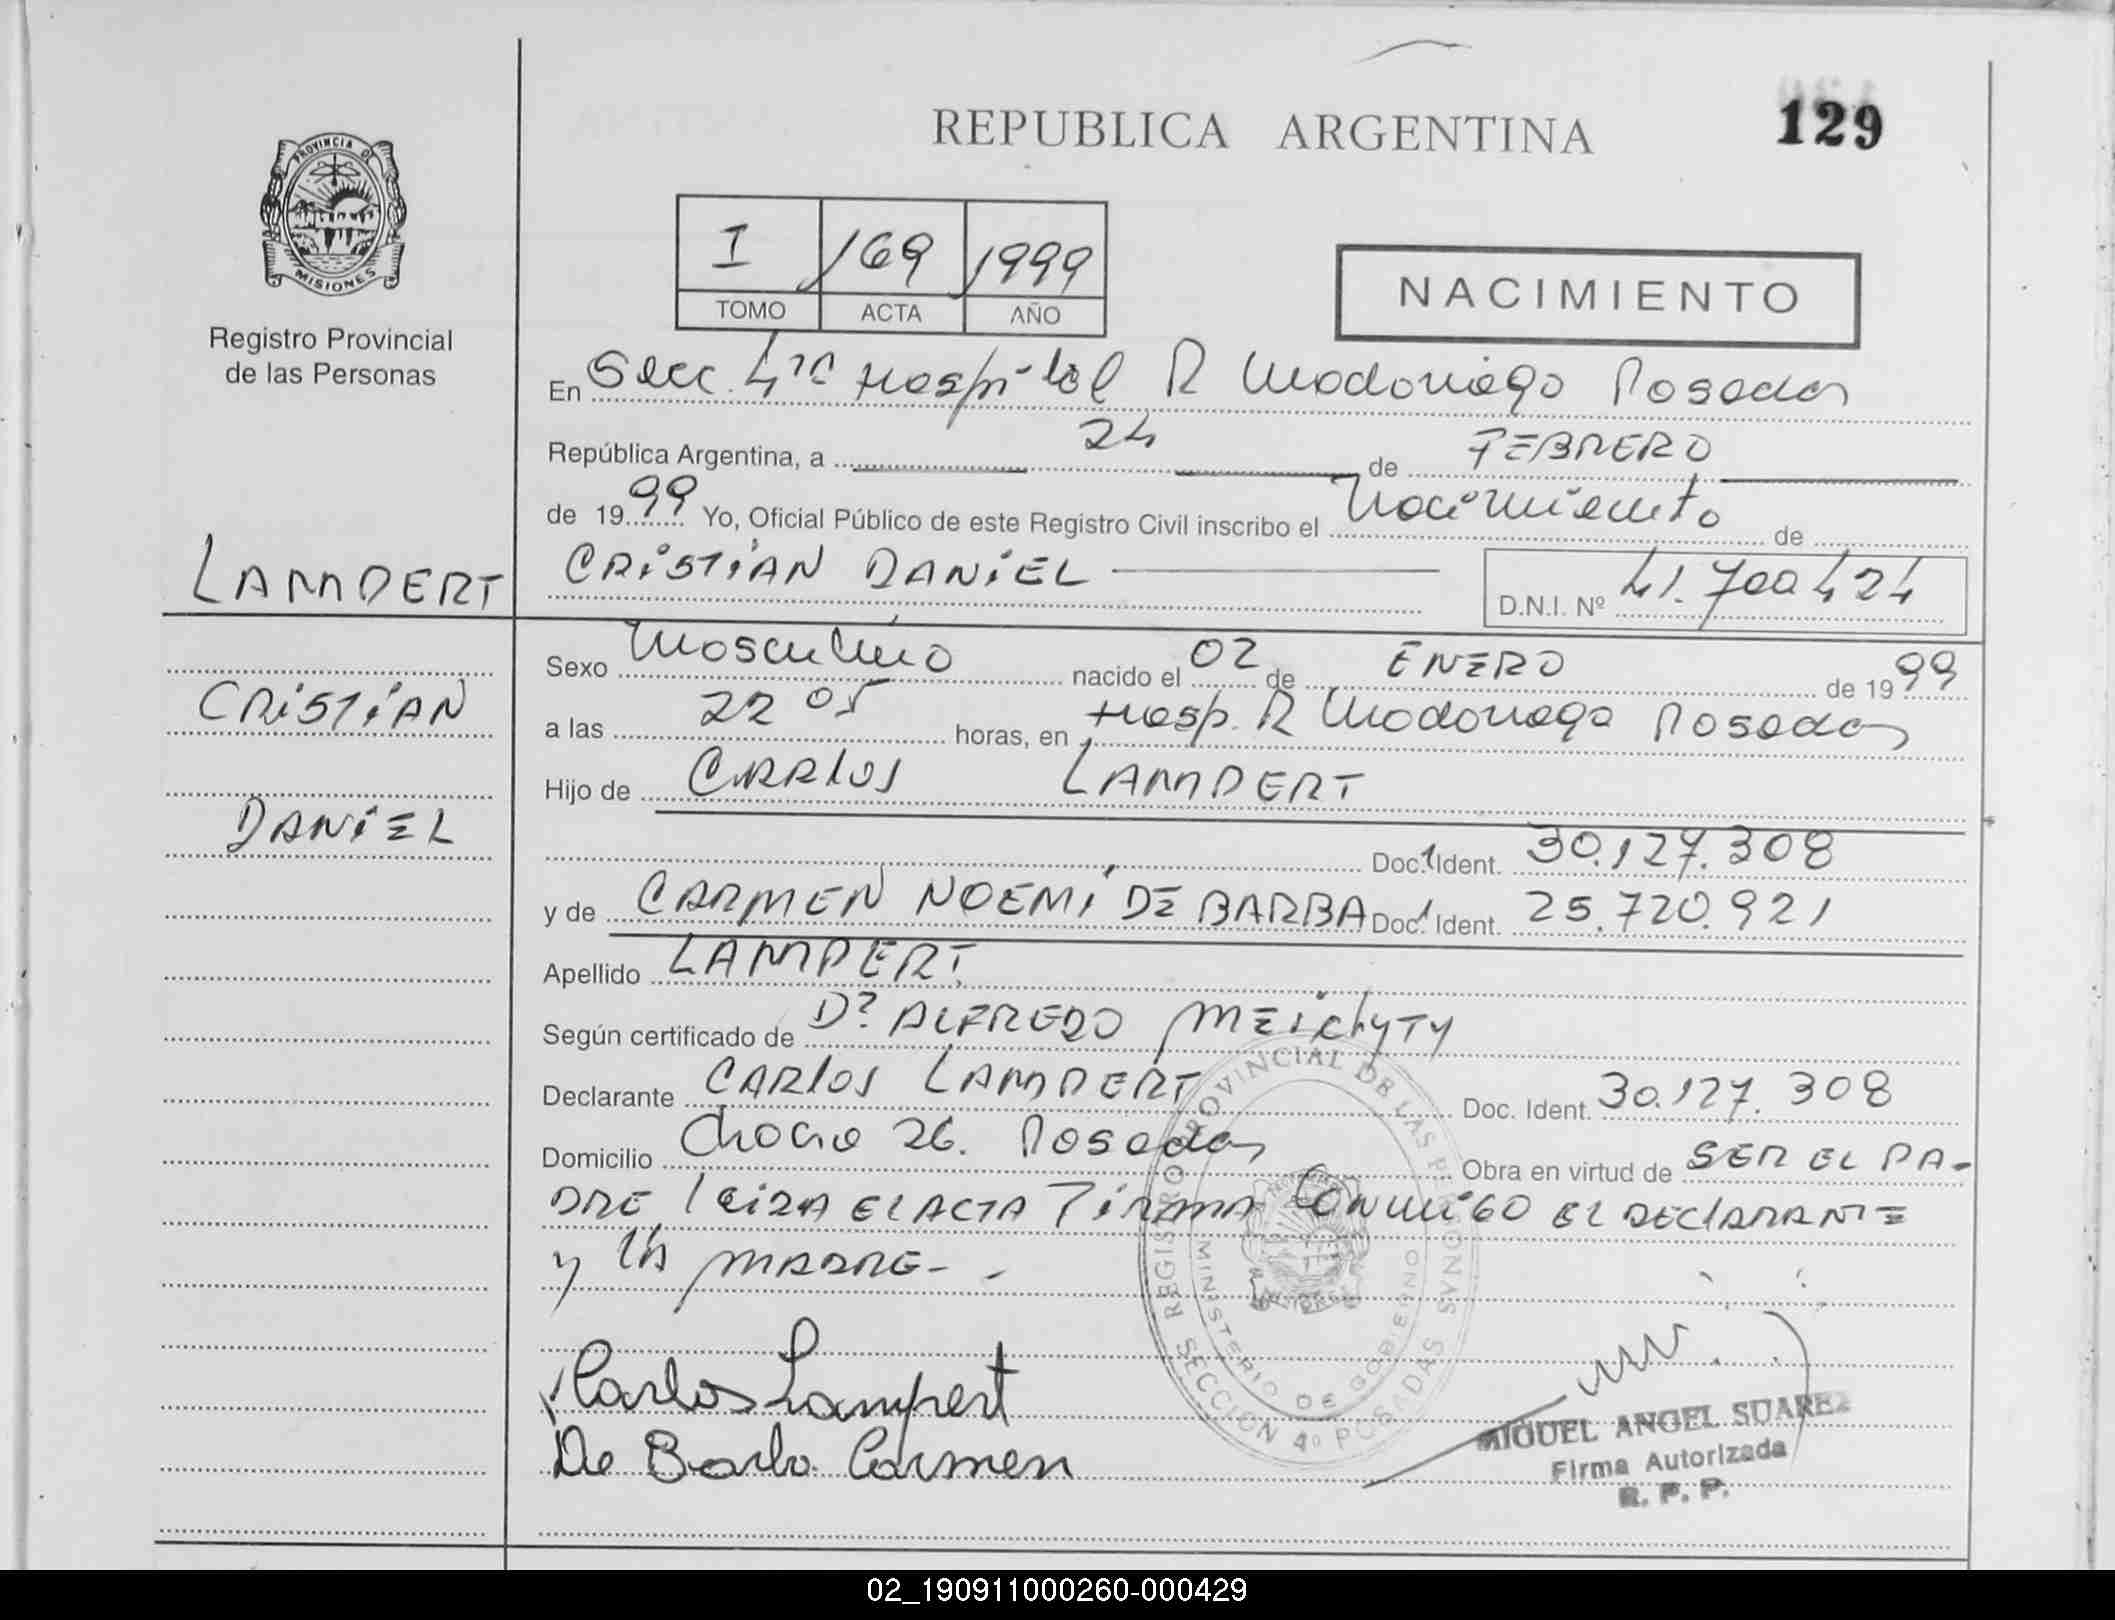 129
REPUBLICA ARGENTINA
PROVINCIA DE
MISIONES
Registro Provincial
de las Personas
I /69 /1999
TOMO ACTA AÑO
NACIMIENTO
En Secc. 4ta Hospital R Madariaga Posadas
República Argentina, a 24 de FEBRERO
de 1999 Yo, Oficial Público de este Registro Civil inscribo el nacimiento de
LAMPERT
CRISTIAN DANIEL
D.N.I. Nº 41.700424
Sexo Masculino nacido el 02 de ENERO de 1999
CRISTIAN
a las 22 05 horas, en Hosp. R Madariaga Posadas
Hijo de CARLOS LAMPERT
DANIEL
Doc. Ident. 30.127.308
y de CARMEN NOEMI DE BARBA Doc. Ident. 25.720.921
Apellido LAMPERT
Según certificado de Dr ALFREDO
Declarante CARLOS LAMPERT Doc. Ident. 30.127.308
Domicilio 26. Posadas Obra en virtud de SER EL PA-
DRE EL ACTA FIRMA CONMIGO EL DECLARANTE
y LA MADRE- -
Carlos Lampert
De Barba Carmen
REGISTRO PROVINCIAL DE LAS PERSONAS
MINISTERIO DE GOBIERNO
SECCION 4º POSADAS
MIGUEL ANGEL SUAREZ
Firma Autorizada
R. P. P.
02_190911000260-000429